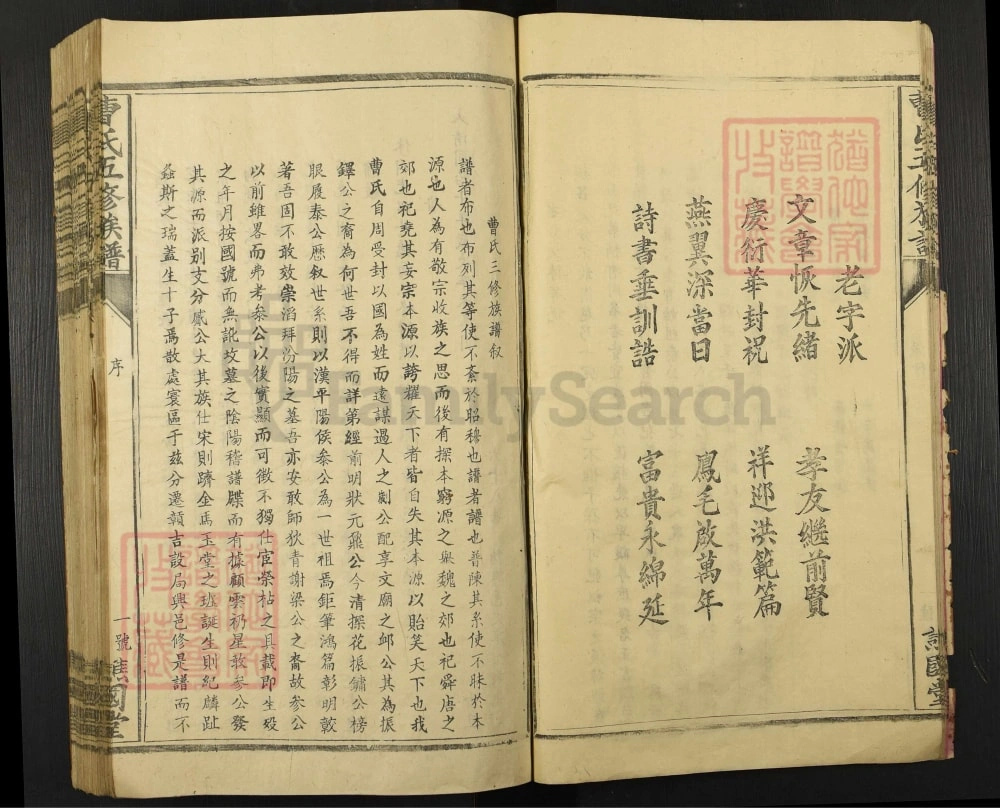 老字派
文章恢先緒
孝友繼前賢
慶衍華封祝
祥迎洪範篇
燕翼深當日
鳳毛啟萬年
詩書垂訓誥
富貴永綿延
曹氏三修族譜叙
譜者布也布列其等使不紊於昭穆也譜者譜也普陳其系使不昧於本
源也人為有敬宗收族之思而後有探本窮源之舉魏之郊也祀舜唐之
郊也祀堯其妄宗本源以誇耀天下者皆自失其本源以貽笑天下也我
曹氏自周受封以國為姓而遠謀過人之劌公配享文廟之卹公其為振
鐸公之裔為何世吾不得而詳第經前明狀元鼐公今清探花振鏞公榜
眼履泰公歷叙世系則以漢平陽侯參公為一世祖焉鉅筆鴻篇彰明較
著吾固不敢效崇滔拜汾陽之墓吾亦安敢師狄青謝梁公之裔故參公
以前雖畧而弗考參公以後實顯而可徵不獨仕宦榮枯之具載即生歿
之年月按國號而無訛坟墓之陰陽稽譜牒而有據顧雲礽星散參公發
其源而派別支分贑公大其族仕宋則躋金馬玉堂之班誕生則紀麟趾
螽斯之瑞蓋生十子焉散處寰區于茲分遷贛吉設局興邑修是譜而不
曹氏五修族譜
序
一號
譙國堂
曹氏五修族譜
譙國堂
FamilySearch